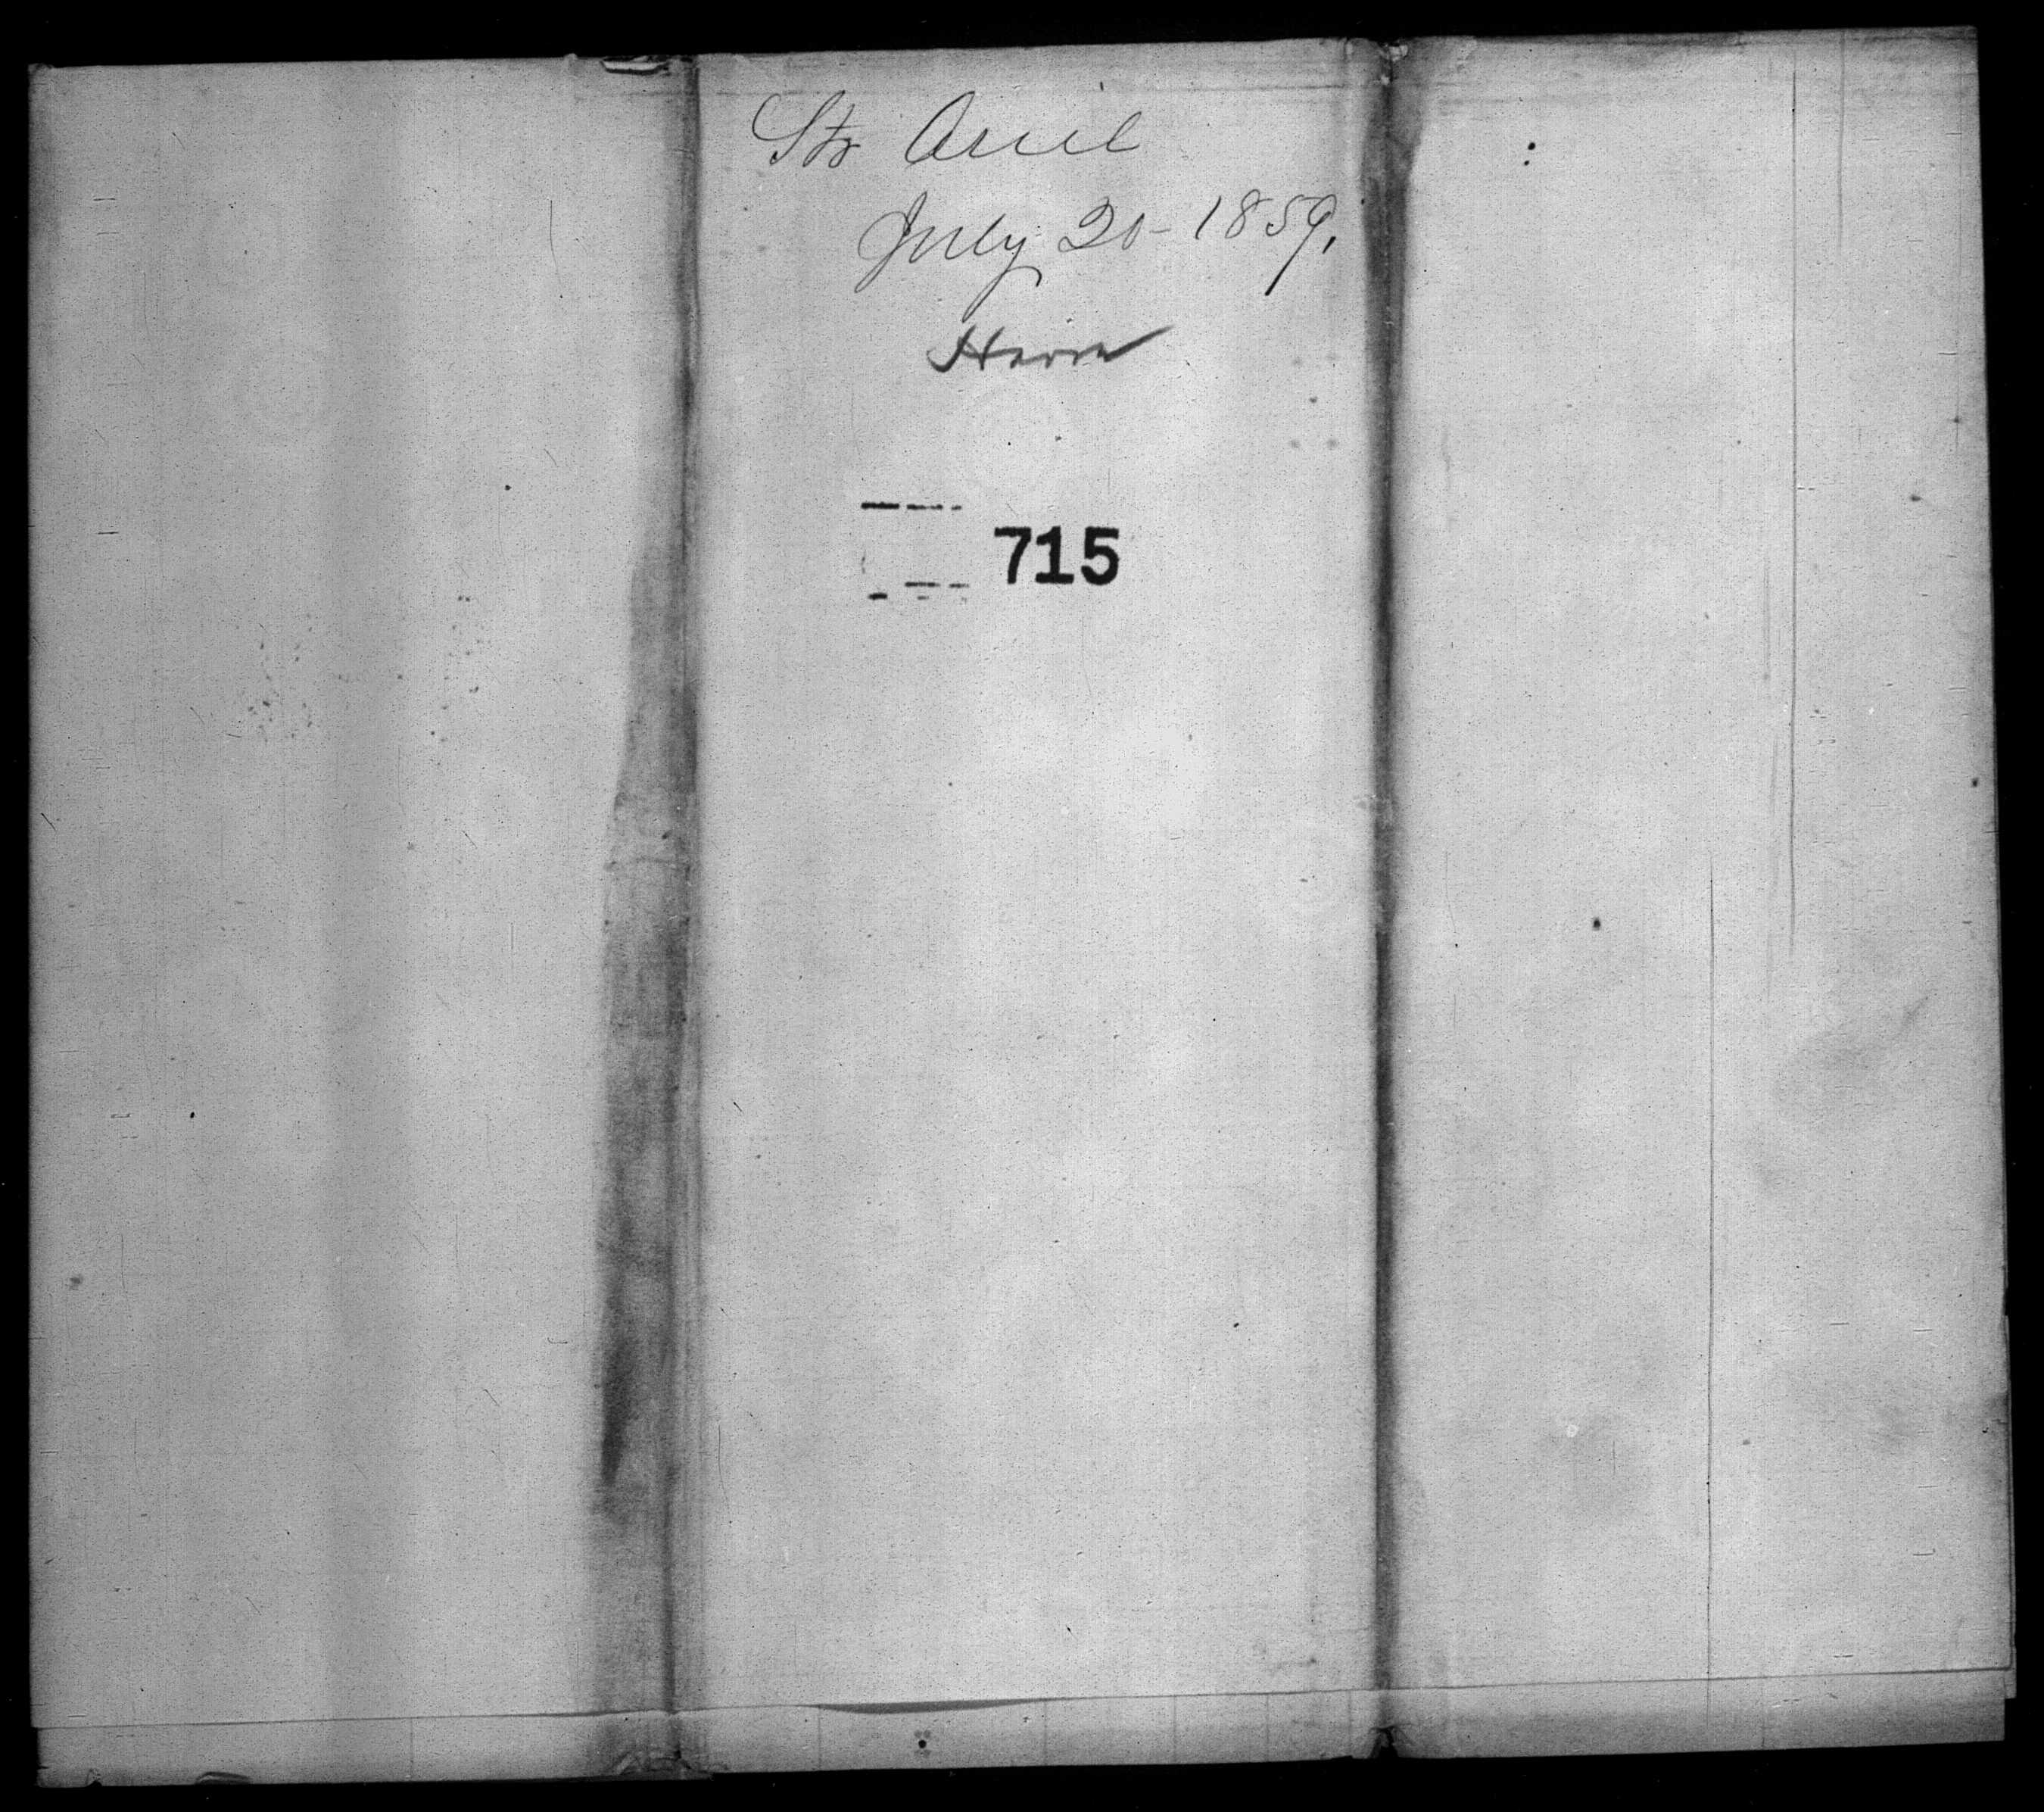 Str Ariel
July 20 - 1859.
Havre
715